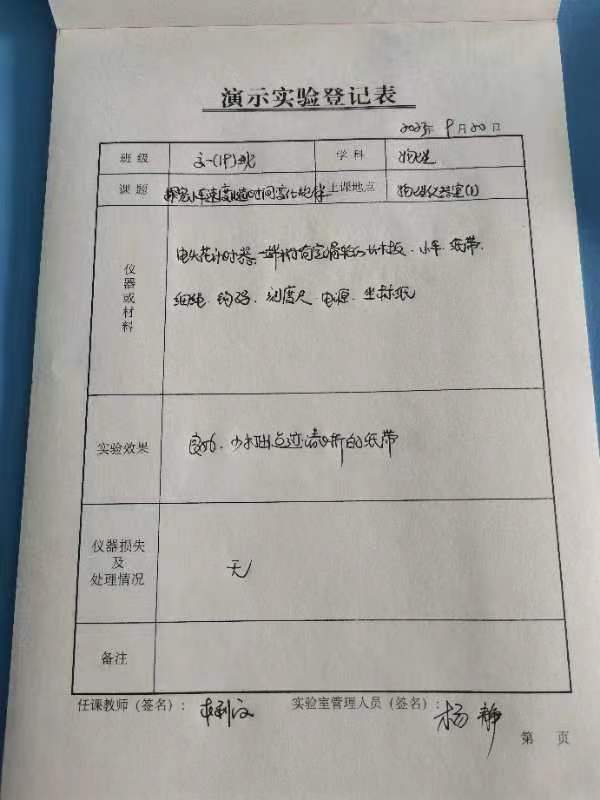 演示实验登记表
2023年 9月20日
班级 高一(19)班 学科 物理
课题 探究小车速度随时间变化规律 上课地点 物理仪器室(1)
仪器或材料
电火花计时器、一端附有定滑轮的长木板、小车、纸带、
细绳、钩码、刻度尺、电源、坐标纸
实验效果 良好、点迹清晰的纸带
仪器损失
及
处理情况
无
备注
任课教师（签名）： 实验室管理人员（签名）： 杨静
第 页